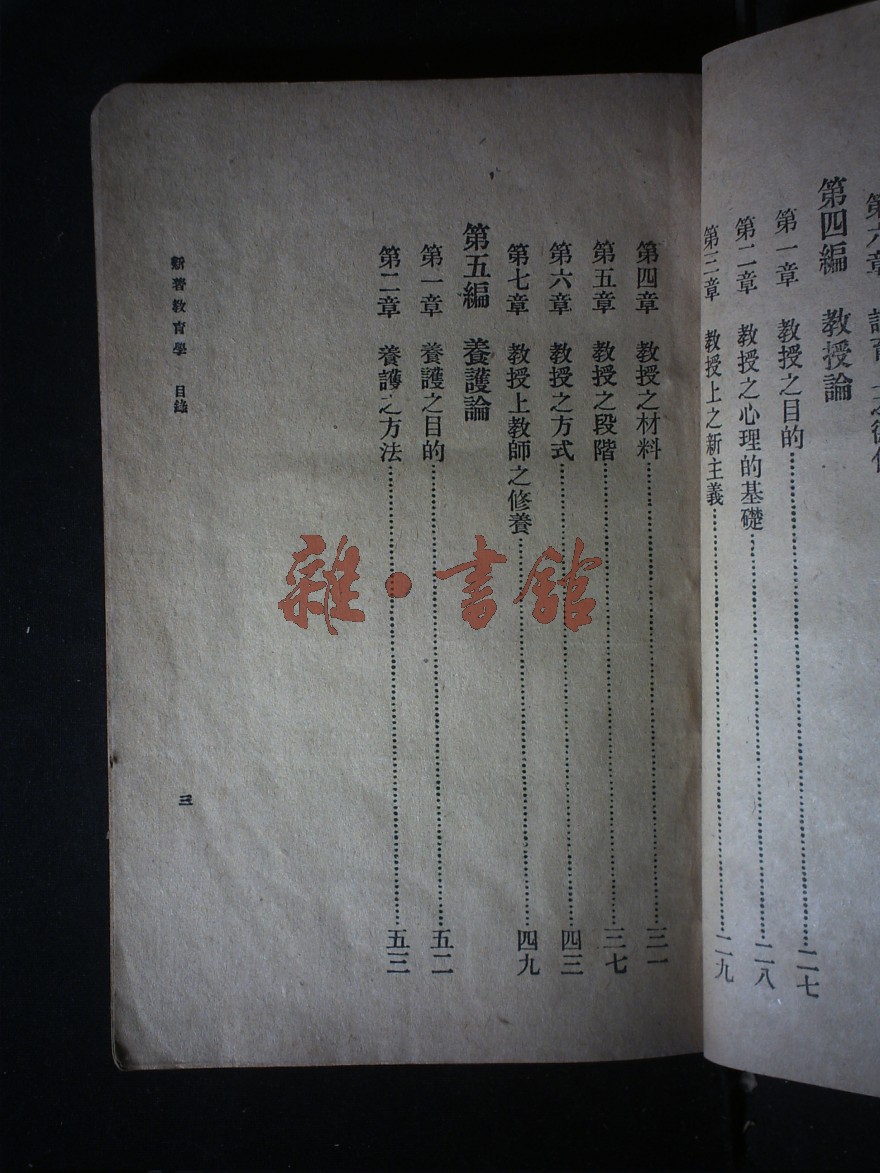 第四編　教授論
第一章　教授之目的……二七
第二章　教授之心理的基礎……二八
第三章　教授上之新主義……二九
第四章　教授之材料……三一
第五章　教授之段階……三七
第六章　教授之方式……四三
第七章　教授上教師之修養……四九
第五編　養護論
第一章　養護之目的……五二
第二章　養護之方法……五三
新著教育學　目錄
三
雜·書館